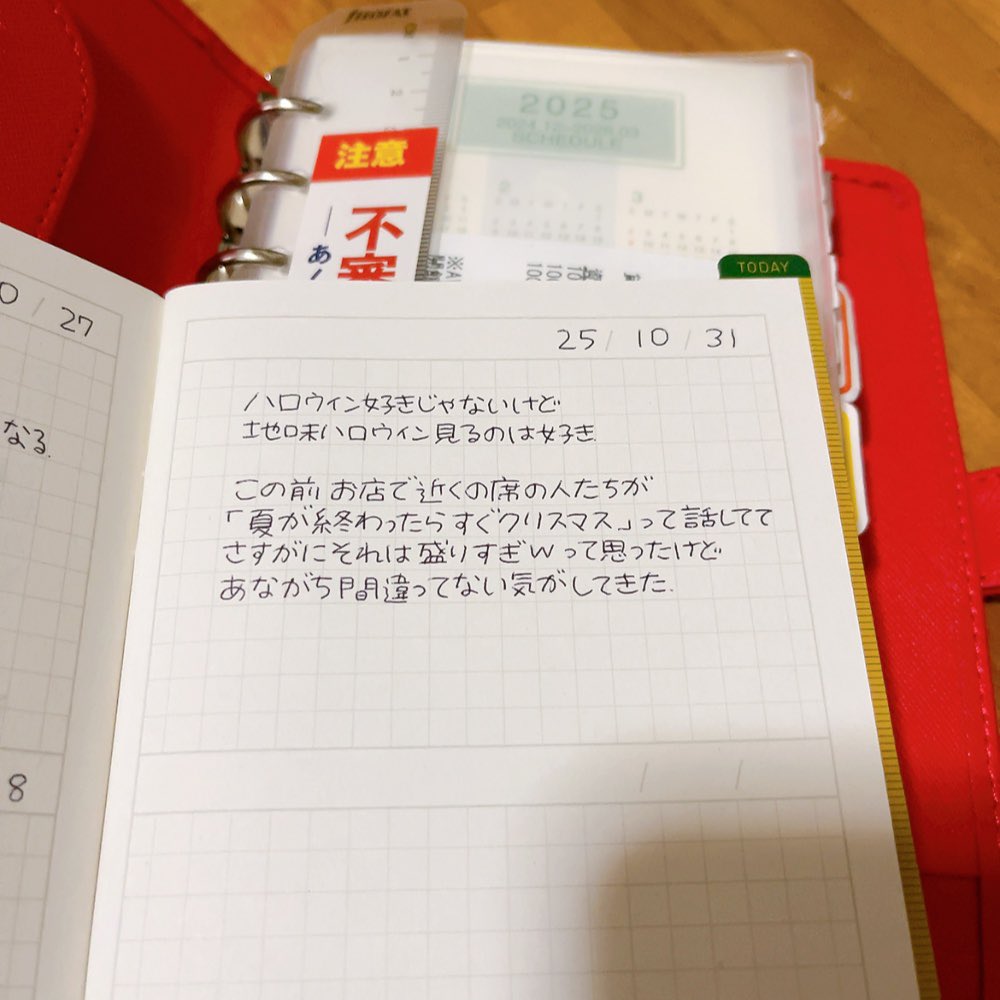 注意
不審
あ
2025
2024.12-2026.03
SCHEDULE
2
3
TODAY
27
なる.
8
25/10/31
ハロウィン好きじゃないけど
地味ハロウィン見るのは好き.
この前お店で近くの席の人たちが
「夏が終わったらすぐクリスマス」って話してて
さすがにそれは盛りすぎwって思ったけど
あながち間違ってない気がしてきた.